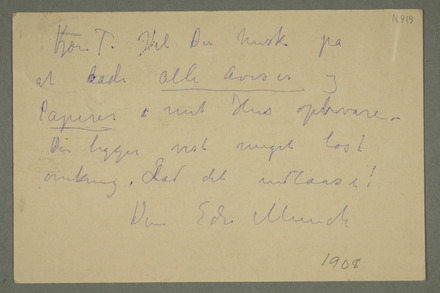 N 919
Kjære T. Vil De huske på
at både alle Aviser og
Papirer i mit Hus opbevares.
Der ligger vist meget løst
omkring. Lad det indlåse!
Deres Edv Munch
1908